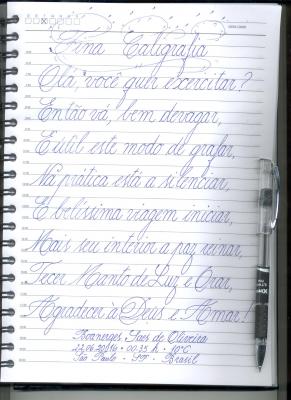 Fina Caligrafia
Olá, você quer exercitar?
Então vá, bem devagar,
É útil este modo de grafar,
Na prática está a silenciar,
E belíssima viagem iniciar,
Mais seu interior a paz reinar,
Tecer Manto de Luz e Orar,
Agradecer à Deus e Amar!
Boanerges Saes de Oliveira
22.06.2016 • 00:35 h • 10°C
São Paulo - SP - Brasil